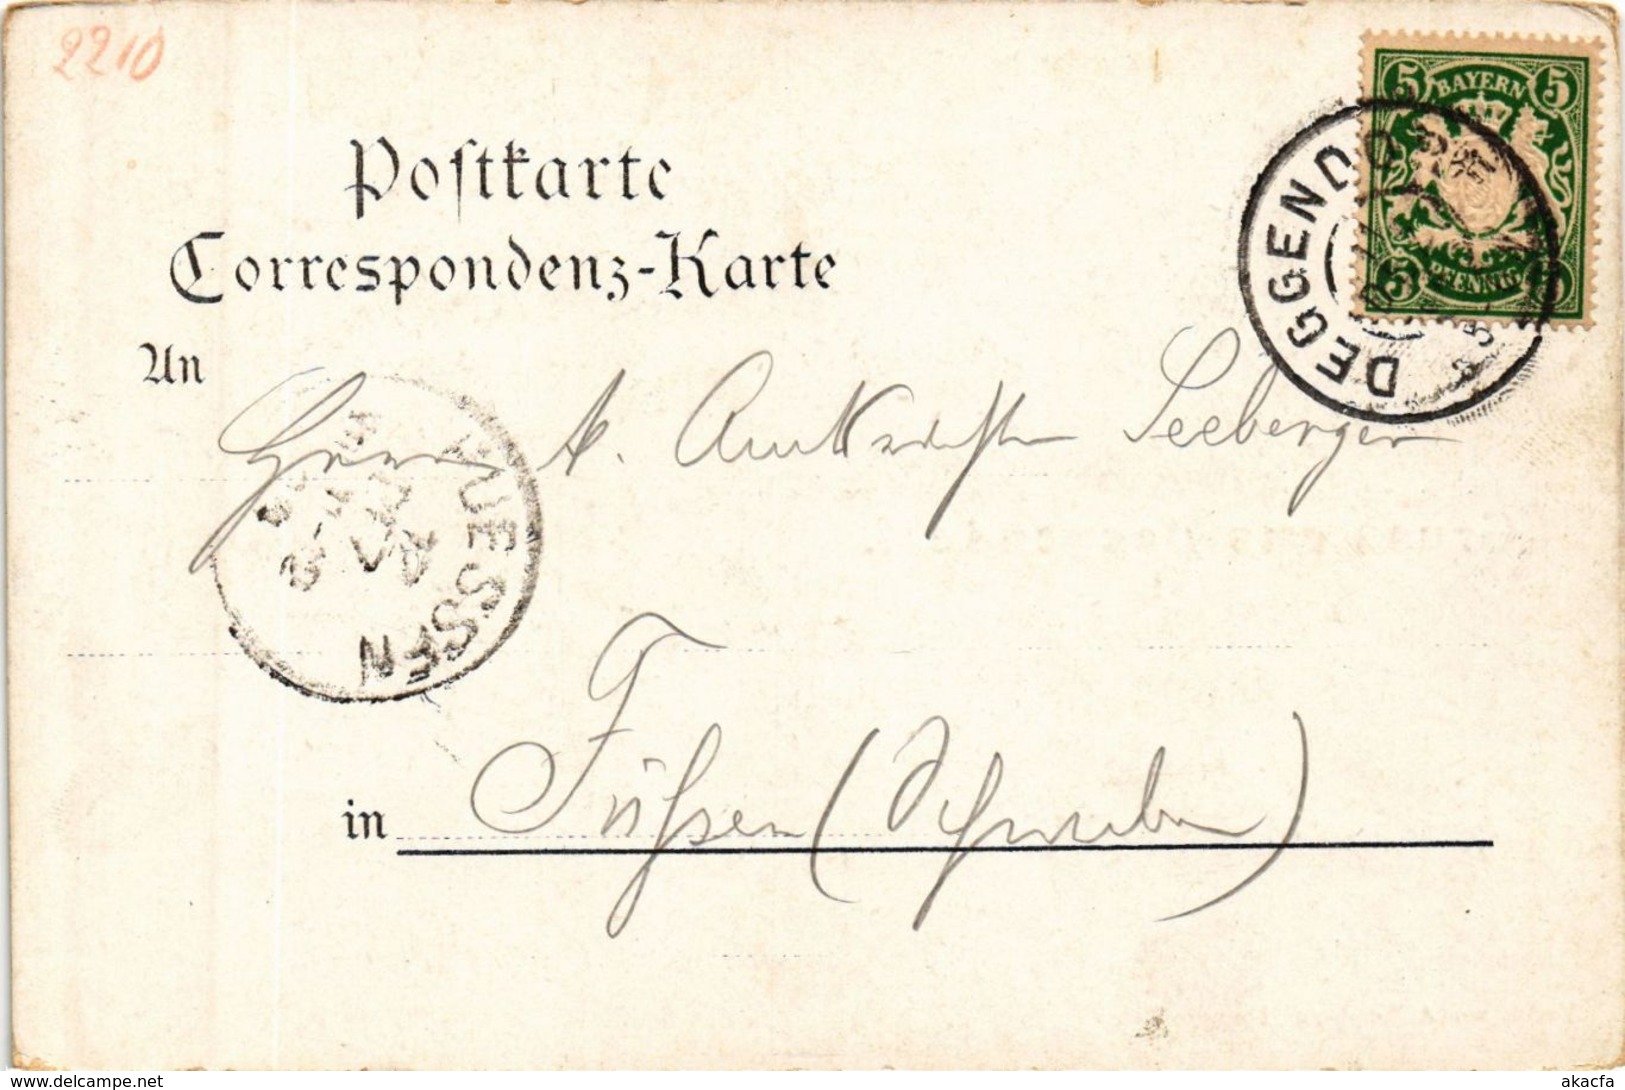 2210
5 BAYERN 5
5 PFENNIG 5
DEGGENDORF
Postkarte
Correspondenz-Karte
An
Herrn k. Amtsrichter Seeberger
FUESSEN
in Füssen (Schwaben)
delcampe.net
akacfa